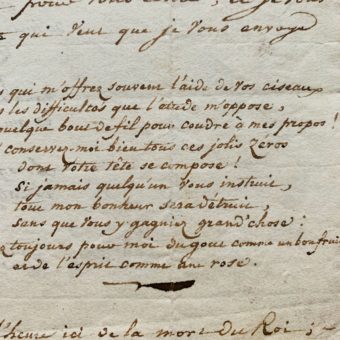 pour vous
qui veut que je vous envoye
qui m'offrez souvent l'aide de vos ciseaux
les difficultés que l'étude m'oppose,
quelque bout de fil pour coudre à mes propos !
conservez-moi bien tous ces jolis zéros
dont votre tête se compose !
Si jamais quelqu'un vous instruit,
tout mon bonheur sera détruit,
sans que vous y gagniez grand'chose :
toujours pour moi du gout comme un bon fruit
de l'esprit comme une rose.
l'heure ici de la mort du Roi ;